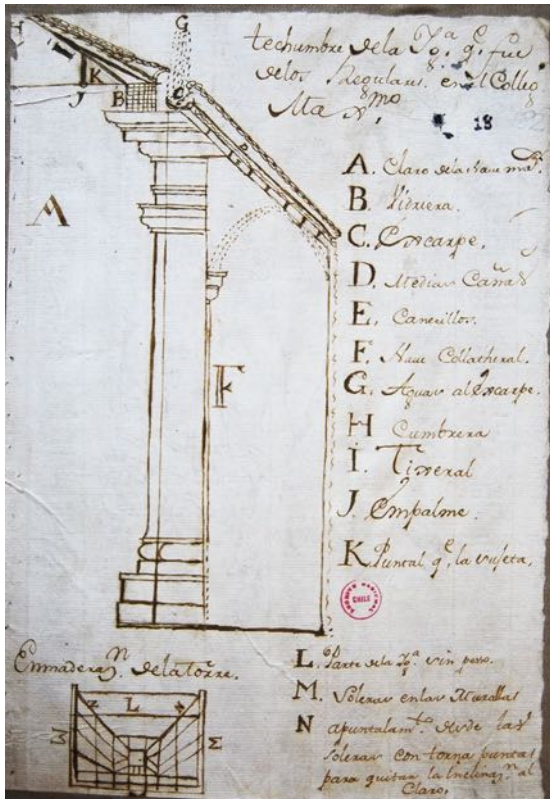 techumbre de la Ygª. qᵉ. fue
de los Regulares. en el Collegº
Max.ᵐᵒ
18
G
K
J
B
C
D
A
F
A. Claro de la Nave maᵒʳ.
B. Vidriera.
C. Escarpe.
D. Medias Cañas
E. Canecillos.
F. Nave Collatheral.
G. Aguas al Escarpe.
H Cumbrera
I. Tisseral
J. Empalme.
K Puntal qᵉ. la sujeta.
ARCHIVO NACIONAL
CHILE
Enmaderaⁿ. de la torre.
L. Parte de la Ygª. sin peso.
M. Soleras en las Murallas
N apuntalamᵗᵒ. desde las
soleras con torna puntas
para quitar la Inclinaⁿ. al
Claro.
N L N
M M